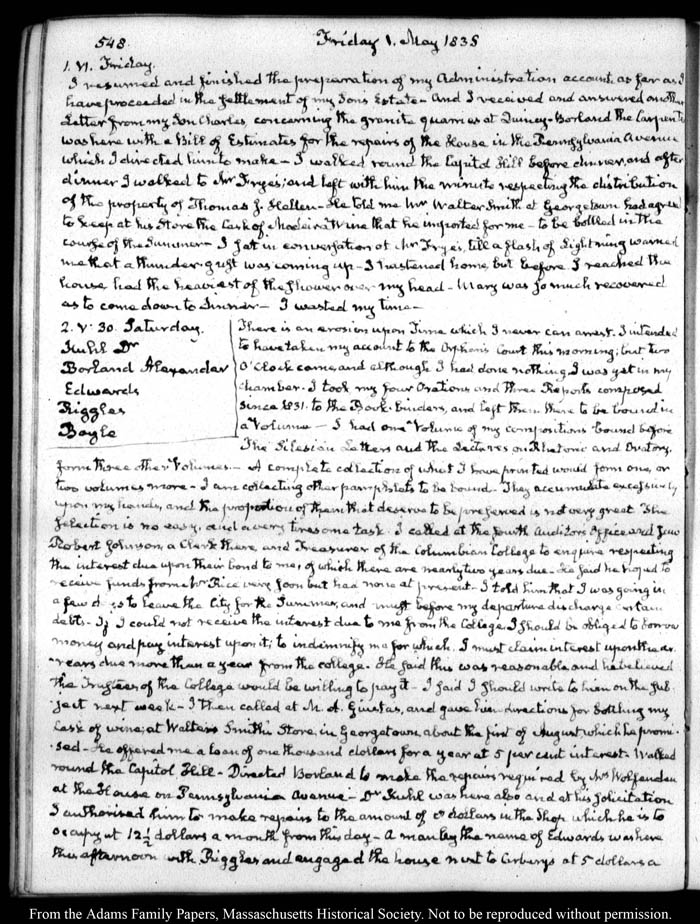 548.
Friday 1. May 1835
1. VI. Friday.
I resumed and finished the preparation of my Administration account, as far as I
have proceeded in the settlement of my Sons Estate - And I received and answered another
Letter from my Son Charles, concerning the granite quarries at Quincy - Borland the Carpenter
was here with a Bill of Estimates for the repairs of the House in the Pennsylvania Avenue
which I directed him to make - I walked round the Capitol Hill before dinner, and after
dinner I walked to Mr Frye's; and left with him the minute respecting the distribution
of the property of Thomas J. Hellen - He told me Mr Walter Smith at Georgetown had agreed
to keep at his Store the Cask of Madeira Wine that he imported for me - to be bottled in the
course of the Summer - I sat in conversation at Mr Frye's, till a flash of Lightning warned
me that a thunder-gust was coming up - I hastened home, but before I reached the
house had the heaviest of the shower over my head - Mary was so much recovered
as to come down to Dinner - I wasted my time -
2. V. 30. Saturday.
Kuhl Dr
Borland Alexander
Edwards
Riggles
Boyle
There is an erosion upon Time which I never can arrest. I intended
to have taken my account to the Orphan's Court this morning; but two
O'Clock came, and although I had done nothing, I was yet in my
chamber. I took my four Orations and three Reports composed
since 1831. to the Book-binders, and left them there to be bound in
a Volume - I had one Volume of my compositions bound before
The Silesian Letters and the Lectures on Rhetoric and Oratory,
form three other Volumes. - A complete collection of what I have printed would form one, or
two volumes more - I am collecting other pamphlets to be bound - They accumulate excessively
upon my hands, and the proportion of them that deserve to be preserved is not very great. The
selection is no easy, and a very tiresome task. I called at the fourth Auditors Office and saw
Robert Johnson, a Clerk there, and Treasurer of the Columbian College to enquire respecting
the interest due upon their bond to me, of which there are nearly two years due - He said he hoped to
receive funds from Mr Rice very soon but had none at present - I told him that I was going in
a few days to leave the City for the Summer, and must before my departure discharge certain
debts - If I could not receive the interest due to me from the College I should be obliged to borrow
money and pay interest upon it; to indemnify me for which I must claim interest upon the ar-
rears due more than a year from the college. He said this was reasonable, and he believed
the Trustees of the College would be willing to pay it - I said I should write to him on the sub-
ject next week - I then called at M. A. Giusta's, and gave him directions for bottling my
Cask of wine, at Walter Smith's Store, in Georgetown, about the first of August, which he promi-
sed - He offered me a loan of one thousand dollars for a year at 5 per cent interest. Walked
round the Capitol Hill - Directed Borland to make the repairs required by Mrs Wolfenden
at the House on Pennsylvania Avenue - Dr Kuhl was here also and at his solicitation
I authorised him to make repairs to the amount of dollars in the Shop which he is to
occupy at 12 1/2 dollars a month from this day - A man by the name of Edwards was here
this afternoon with Riggles and engaged the house next to at 5 dollars a
From the Adams Family Papers, Massachusetts Historical Society. Not to be reproduced without permission.